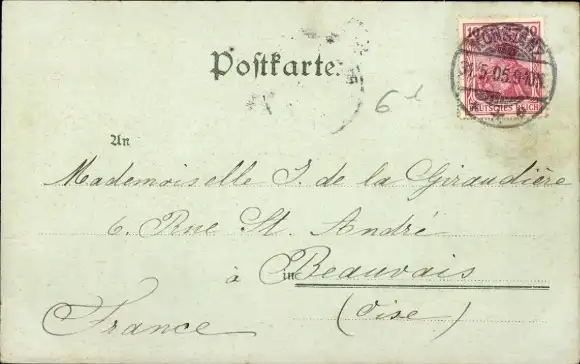 10 10
KONSTANZ
5.05.9-10
DEUTSCHES REICH
Postkarte.
6 d
An
Mademoiselle J. de la Giraudière
6. Rue St. André
à in Beauvais
(Oise)
France